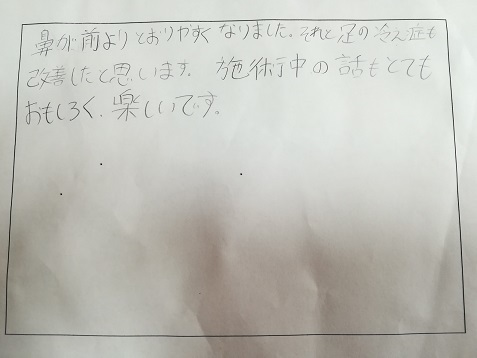 鼻が前よりとおりやすくなりました。それと足の冷え症も
改善したと思います。施術中の話もとても
おもしろく、楽しいです。